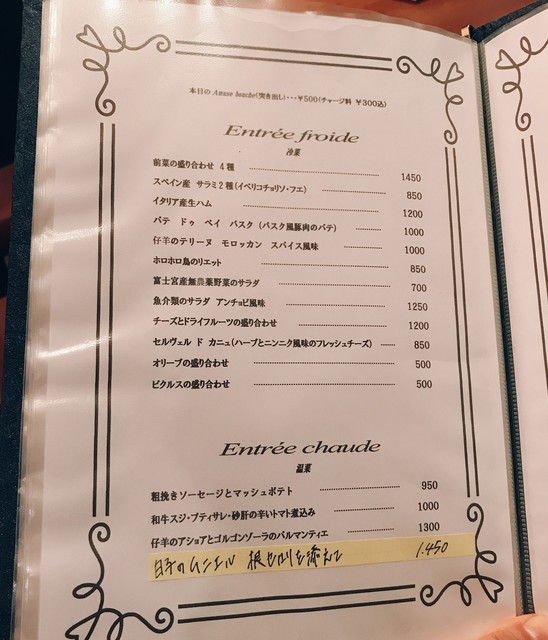 本日の Amuse bouche(突き出し)・・・¥500(チャージ料 ¥300込)
Entrée froide
冷菜
前菜の盛り合わせ 4種 1450
スペイン産 サラミ2種(イベリコチョリソ・フエ) 850
イタリア産生ハム 1200
パテ ドゥ ペイ バスク (バスク風豚肉のパテ) 1000
仔羊のテリーヌ モロッカン スパイス風味 1000
ホロホロ鳥のリエット 850
富士宮産無農薬野菜のサラダ 700
魚介類のサラダ アンチョビ風味 1250
チーズとドライフルーツの盛り合わせ 1200
セルヴェル ド カニュ(ハーブとニンニク風味のフレッシュチーズ) 850
オリーブの盛り合わせ 500
ピクルスの盛り合わせ 500
Entrée chaude
温菜
粗挽きソーセージとマッシュポテト 950
和牛スジ・プティサレ・砂肝の辛いトマト煮込み 1000
仔羊のアショアとゴルゴンゾーラのパルマンティエ 1300
白子のムニエル 根セロリを添えて 1.450